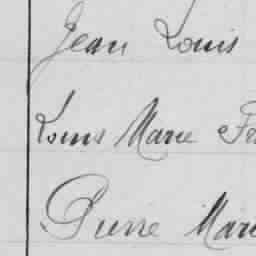 Jean Louis
Louis Marie
Pierre Marie